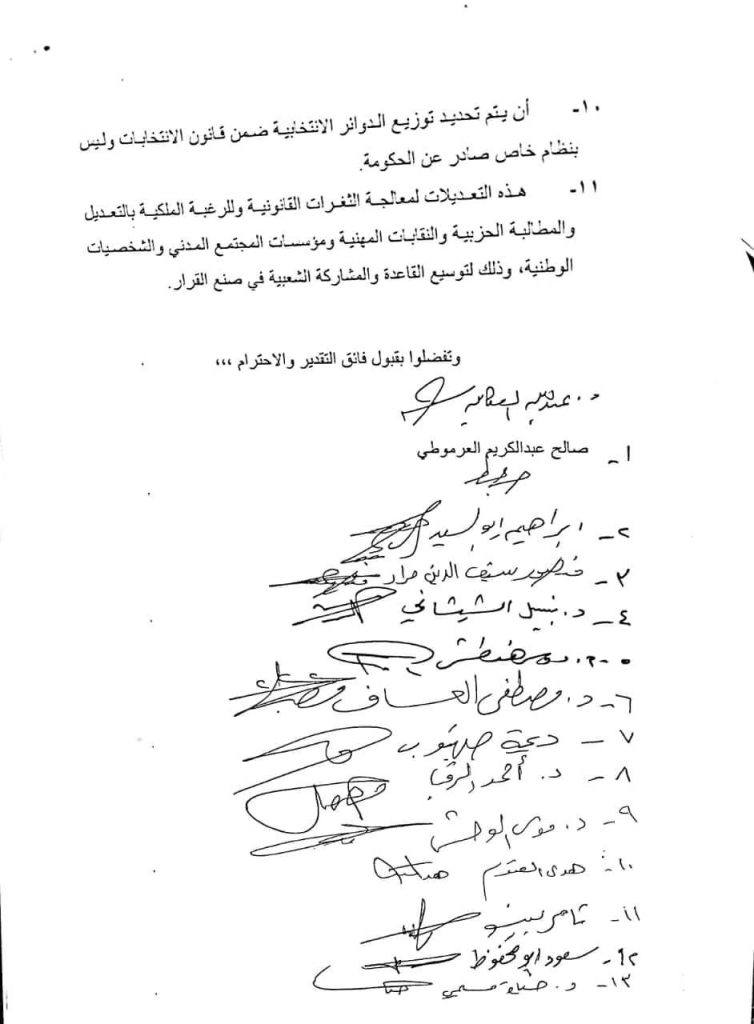 ١٠- أن يتم تحديد توزيع الدوائر الانتخابية ضمن قانون الانتخابات وليس
بنظام خاص صادر عن الحكومة.
١١- هذه التعديلات لمعالجة الثغرات القانونية وللرغبة الملكية بالتعديل
والمطالبة الحزبية والنقابات المهنية ومؤسسات المجتمع المدني والشخصيات
الوطنية، وذلك لتوسيع القاعدة والمشاركة الشعبية في صنع القرار.
وتفضلوا بقبول فائق التقدير والاحترام ،،،
د. عبدالله العكايلة
١- صالح عبدالكريم العرموطي
٢- ابراهيم ابو السيد
٣- منصور سيف الدين مراد
٤- د. نبيل الشيشاني
٥-
٦- د. مصطفى العساف
٧- ديمة طهبوب
٨- د. أحمد الرقب
٩- د. موسى الوحش
١٠- هدى العتوم
١١- تامر بينو
١٢- سعود ابو محفوظ
١٣- د.